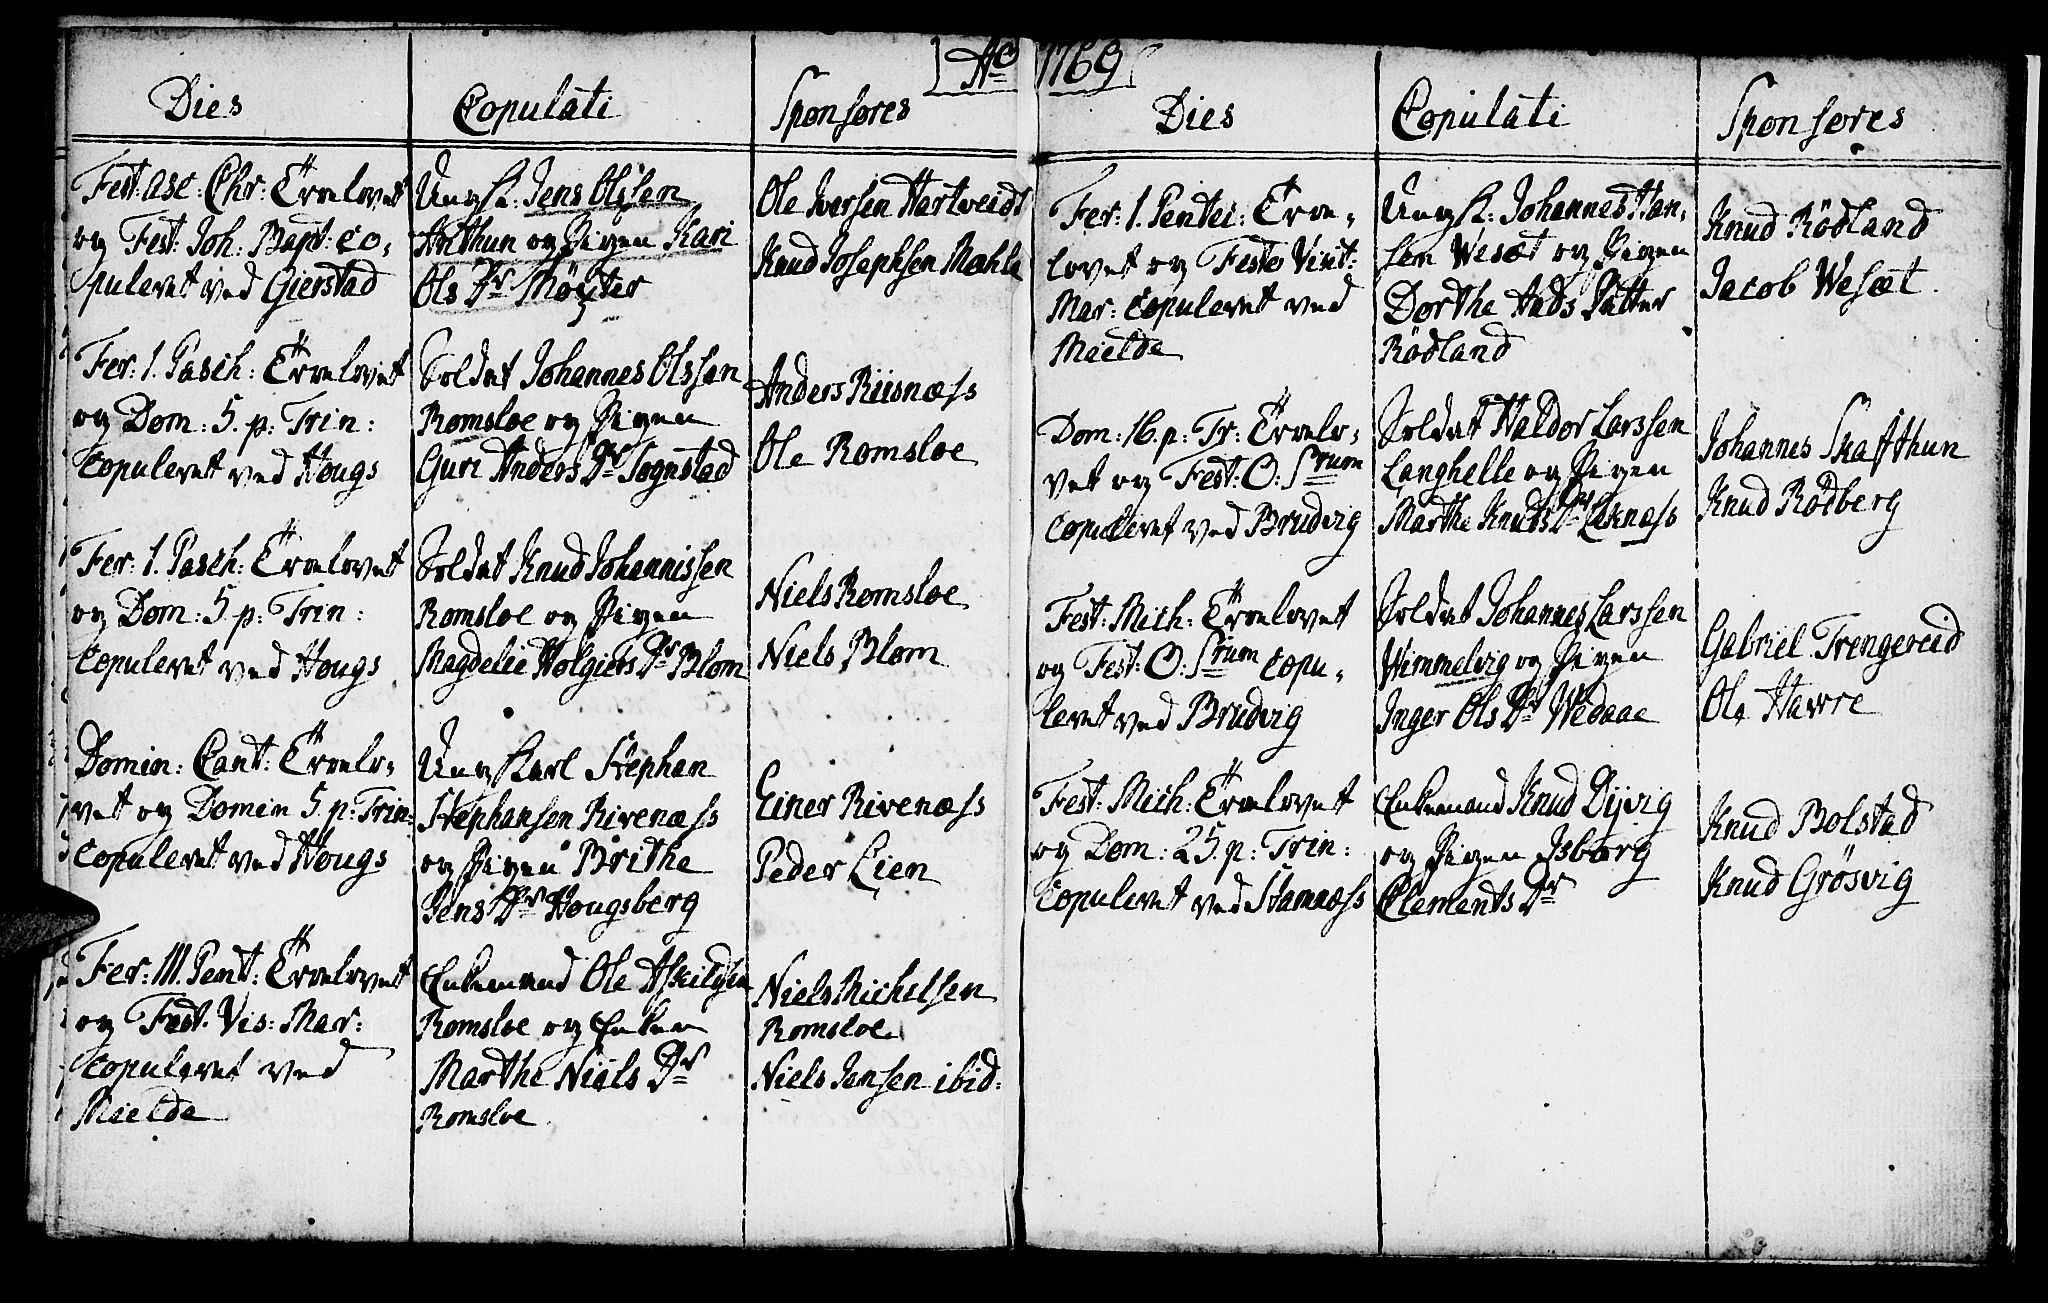 Ao 1769
Dies
Copulati
Sponsores
Fest: asc: Chr: Trolovet
og Fest: Joh: Bapt: co-
puleret ved Gierstad
Ungk: Jens Olssen
Arthun og Pigen Kari
Ols Dr Möster
Ole Iversen Hartveidt
Knud Josephsen Mæhle
Fer: 1. Pasch: Trolovet
og Dom: 5. p: Trin:
Copuleret ved Hougs
Soldat Johannes Olssen
Romsloe og Pigen
Guri Anders Dr Tognstad
Anders Riisnæss
Ole Romsloe
Fer: 1. Pasch: Trolovet
og Dom: 5. p: Trin:
Copuleret ved Hougs
Soldat Knud Johannissen
Romsloe og Pigen
Magdeli Holgiers Dr Blom
Niels Romsloe
Niels Blom
Domin: Cant: Trolo-
vet og Domin 5. p: Trin:
Copuleret ved Hougs
Ungkarl Stephan
Stephansen Rivenæss
og Pigen Brithe
Jens Dr Hougsberg
Einer Rivenæss
Peder Lien
Fer: III. Pent: Trolovet
og Fest. Vis: Mar:
Copuleret ved
Mielde
Enkemand Ole Askildsen
Romsloe og Enken
Marthe Niels Dr
Romsloe
Niels Michelsen
Romsloe
Niels Jensen ibid:
Dies
Copulati
Sponsores
Fer: 1. Pentec: Tro-
lovet og Festo Visit:
Mar: Copuleret ved
Mielde
Ungk: Johannes Han-
sen Wesæt og Pigen
Dorthe Mads Datter
Rödland
Knud Rödland
Jacob Wesæt.
Dom: 16. p: Tr: Trolo-
vet og Fest: O: Srum
copuleret ved Brudvig
Soldat Haldor Larssen
Langhelle og Pigen
Marthe Knuds Dr Leknæss
Johannes Skafthun
Knud Rödberg
Fest: Mich: Trolovet
og Fest: O: Srum copu-
leret ved Brudvig
Soldat Johannes Larssen
Himmelvig og Pigen
Inger Ols Dr Wedaae
Gabriel Trengereid
Ole Havre
Fest: Mich: Trolovet
og Dom: 25. p: Trin:
Copuleret ved Stamnæss
Enkemand Knud Dyvig
og Pigen Isborg
Clements Dr
Knud Bolstad
Knud Grösvig